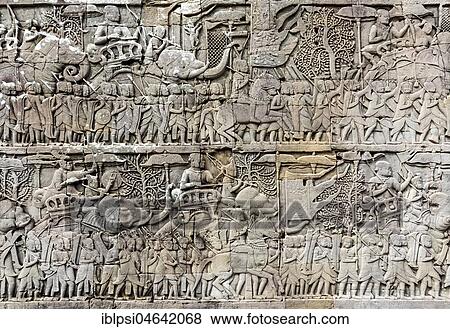 Fotosearch
iblpsi04642068 www.fotosearch.com